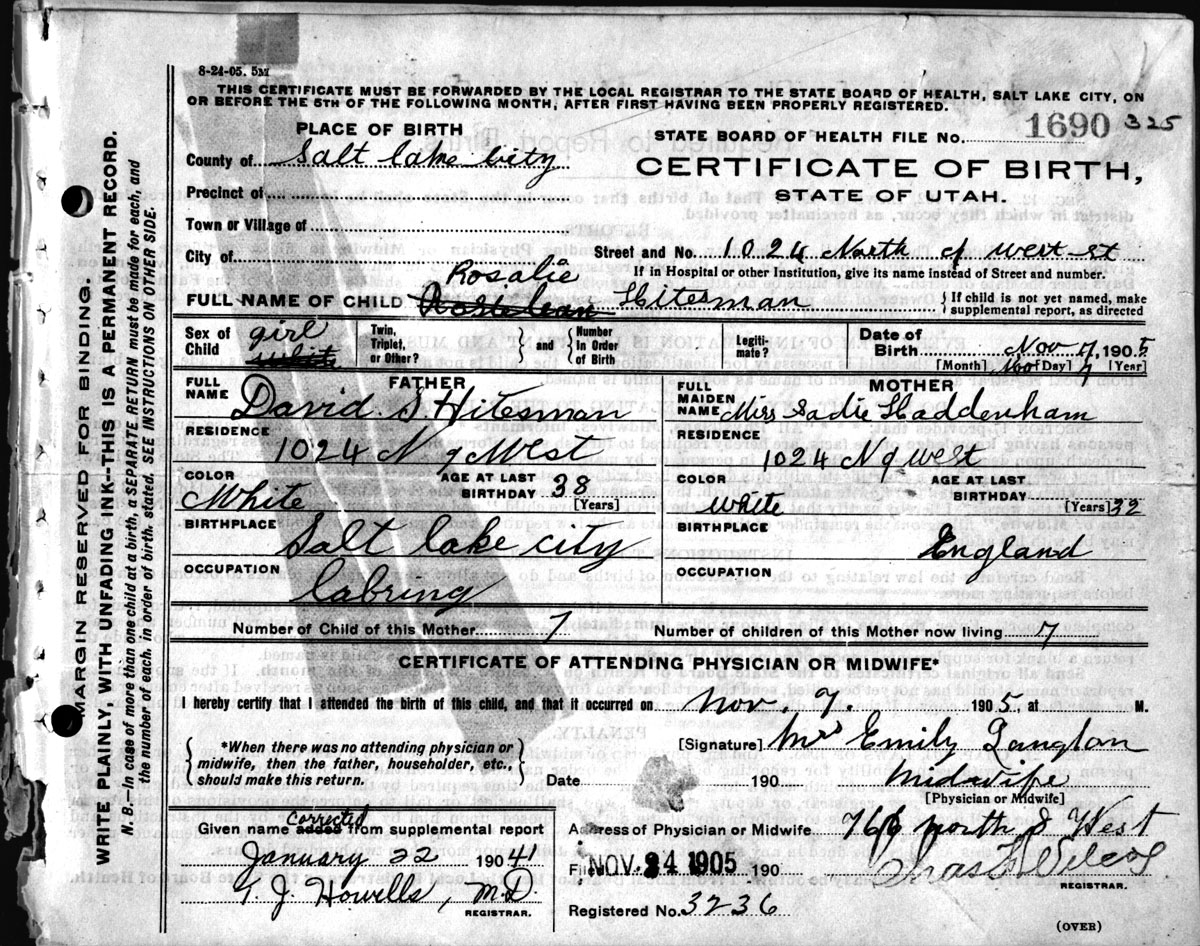 8-24-05. 5M
THIS CERTIFICATE MUST BE FORWARDED BY THE LOCAL REGISTRAR TO THE STATE BOARD OF HEALTH, SALT LAKE CITY, ON
OR BEFORE THE 5TH OF THE FOLLOWING MONTH, AFTER FIRST HAVING BEEN PROPERLY REGISTERED.
PLACE OF BIRTH
STATE BOARD OF HEALTH FILE No. 1690 325
County of Salt Lake City
CERTIFICATE OF BIRTH,
Precinct of
STATE OF UTAH.
Town or Village of
Street and No. 1024 North 9 West st
City of
If in Hospital or other Institution, give its name instead of Street and number.
Rosalie
FULL NAME OF CHILD Hitesman
{If child is not yet named, make
supplemental report, as directed
Sex of Child girl
white
Twin, Triplet, or Other? } and { Number in Order of Birth
Legiti-mate?
Date of Birth Nov 7, 1905
[Month] [Day] [Year]
FULL NAME FATHER
David S. Hitesman
FULL MAIDEN NAME MOTHER
Miss Sadie Haddenham
RESIDENCE
1024 N 9 West
RESIDENCE
1024 N 9 West
COLOR White
AGE AT LAST BIRTHDAY 38
[Years]
COLOR White
AGE AT LAST BIRTHDAY 32
[Years]
BIRTHPLACE
Salt Lake City
BIRTHPLACE
England
OCCUPATION
Labring
OCCUPATION
Number of Child of this Mother 7
Number of children of this Mother now living 7
CERTIFICATE OF ATTENDING PHYSICIAN OR MIDWIFE*
I hereby certify that I attended the birth of this child, and that it occurred on Nov. 7. 1905, at M.
{*When there was no attending physician or
midwife, then the father, householder, etc.,
should make this return.}
[Signature] Mrs Emily Langton
Date 190 Midwife
[Physician or Midwife]
corrected
Given name added from supplemental report
January 22 1904
T. J. Howells, M.D.
REGISTRAR.
Address of Physician or Midwife 766 North 8 West
Filed NOV. 24 1905 190
Chas. F. Wilcox
REGISTRAR.
Registered No. 3236
(OVER)
MARGIN RESERVED FOR BINDING.
WRITE PLAINLY, WITH UNFADING INK--THIS IS A PERMANENT RECORD.
N. B.—In case of more than one child at a birth, a SEPARATE RETURN must be made for each, and
the number of each, in order of birth, stated. SEE INSTRUCTIONS ON OTHER SIDE.